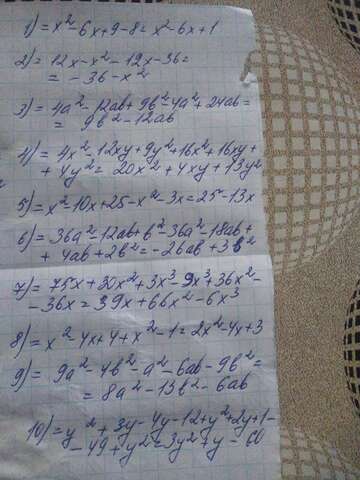 1) = x² - 6x + 9 - 8 = x² - 6x + 1
2) = 12x - x² - 12x - 36 =
= - 36 - x²
3) = 4a² - 12ab + 9b² - 4a² + 24ab =
= 9b² - 12ab
4) = 4x² - 12xy + 9y² + 16x² + 16xy +
+ 4y² = 20x² + 4xy + 13y²
5) = x² - 10x + 25 - x² - 3x = 25 - 13x
6) = 36a² - 12ab + b² - 36a² - 18ab +
+ 4ab + 2b² = - 26ab + 3b²
7) = 75x + 30x² + 3x³ - 9x³ + 36x² -
- 36x = 39x + 66x² - 6x³
8) = x² - 4x + 4 + x² - 1 = 2x² - 4x + 3
9) = 9a² - 4b² - a² - 6ab - 9b² =
= 8a² - 13b² - 6ab
10) = y² + 3y - 4y - 12 + y² + 2y + 1 -
- 49 + y² = 3y² + y - 60